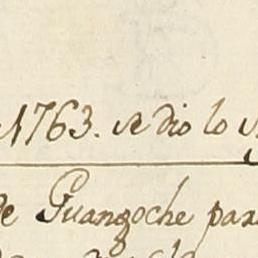 1763. se dio lo
de Guangoche para